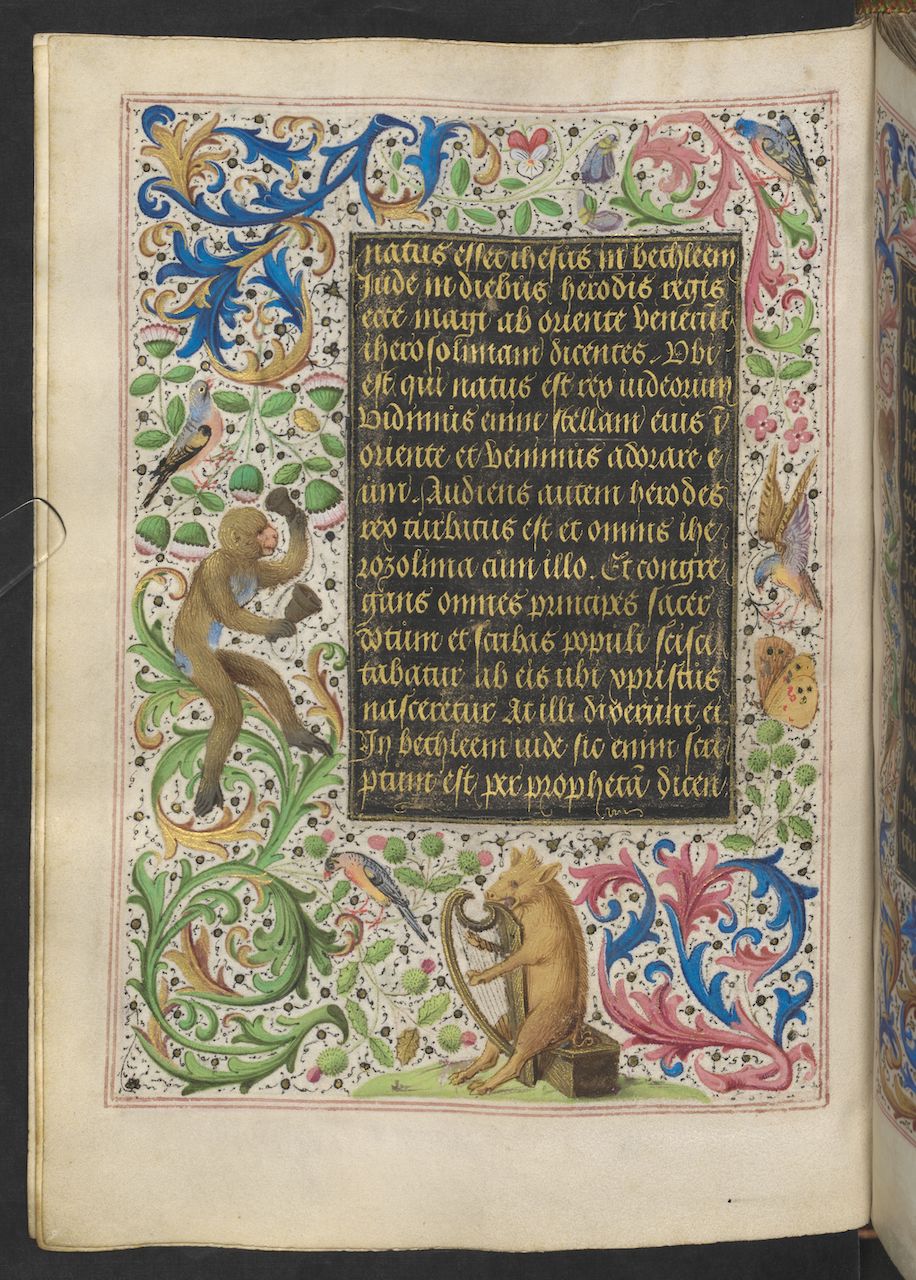 natus esset ihesus in bethleem
Jude in diebus herodis regis
ecce magi ab oriente veneru̅t
iherosolimam dicentes. Vbi
est qui natus est rex iudeorum
Vidimus enim stellam eius i̅
oriente et venimus adorare e
um. Audiens autem herodes
rex turbatus est et omnis ihe
rozolima cum illo. Et congre
gans omnes principes sacer
dotum et scribas populi scisci
tabatur ab eis ubi xpristus
nasceretur At illi dixerunt ei
In bethleem iude sic enim scri
ptum est per propheta̅ dicen